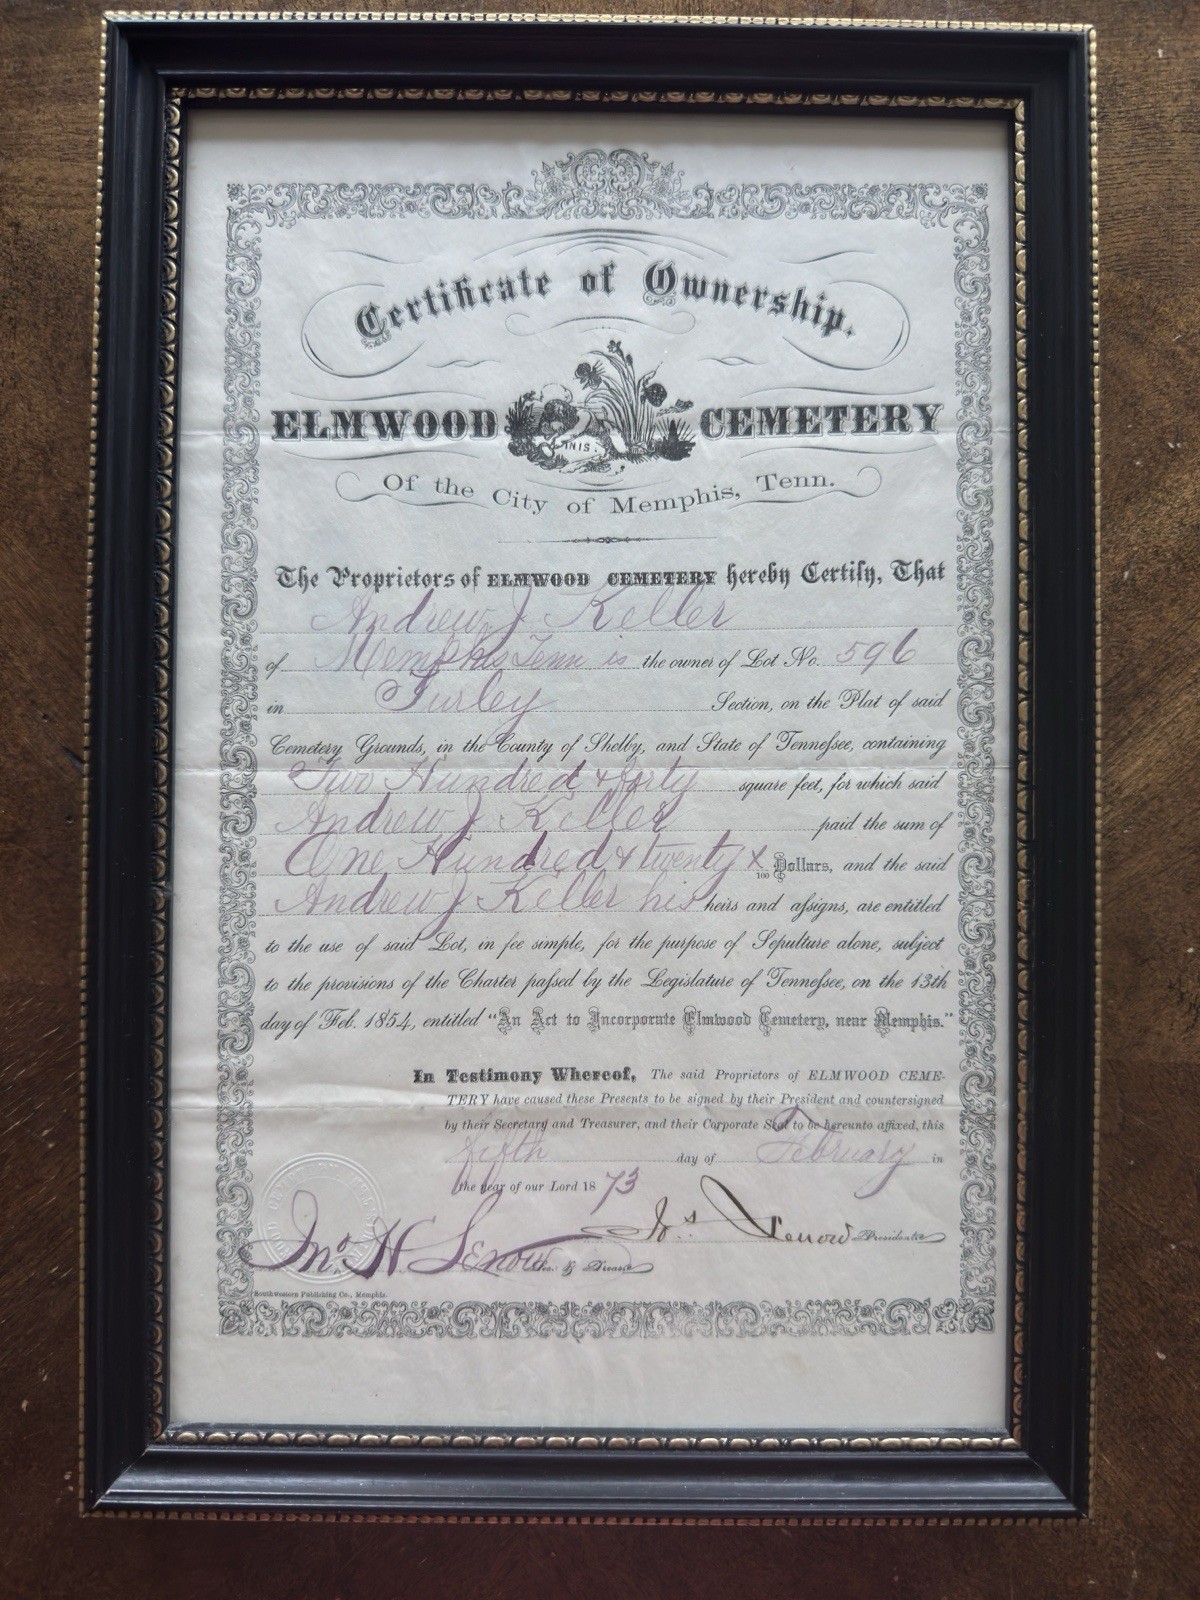 Certificate of Ownership.
ELMWOOD CEMETERY
NIS.
Of the City of Memphis, Tenn.
The Proprietors of ELMWOOD CEMETERY hereby Certify, That
Andrew J. Keller
of Memphis Tenn is the owner of Lot No. 596
in Turley Section, on the Plat of said
Cemetery Grounds, in the County of Shelby, and State of Tennessee, containing
Two Hundred & forty square feet, for which said
Andrew J. Keller paid the sum of
One Hundred & twenty x/100 Dollars, and the said
Andrew J Keller his heirs and assigns, are entitled
to the use of said Lot, in fee simple, for the purpose of Sepulture alone, subject
to the provisions of the Charter passed by the Legislature of Tennessee, on the 13th
day of Feb. 1854, entitled "An Act to Incorporate Elmwood Cemetery, near Memphis."
In Testimony Whereof, The said Proprietors of ELMWOOD CEME-
TERY have caused these Presents to be signed by their President and countersigned
by their Secretary and Treasurer, and their Corporate Seal to be hereunto affixed, this
fifth day of February in
the year of our Lord 1873
Jos Lenow President
Jno H Lenow Sec. & Treas
Southwestern Publishing Co., Memphis.